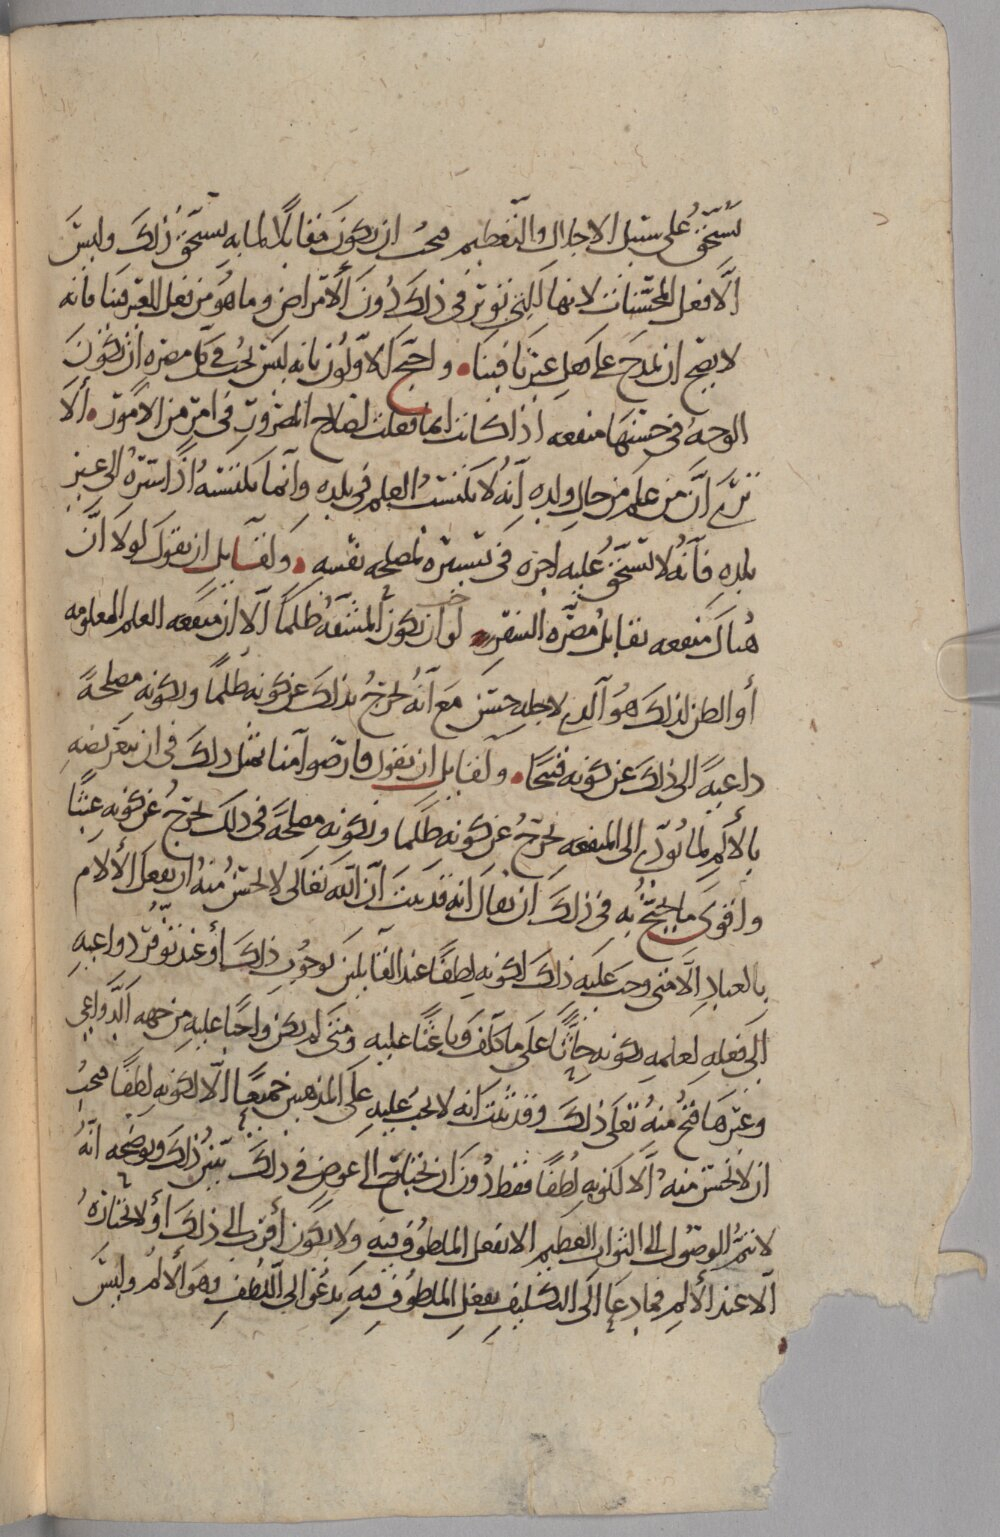 يستحق على سبيل الاجلال والتعظيم فيجب ان يكون مقابلا لما به يستحق ذلك وليس
الا فعل المحسنات لانها التي تؤثر في ذلك دون الامراض وما هو من فعل الله فينا فانه
لا يصح ان نمدح على فعل غيرنا فينا واحتج الاولون بانه ليس يجب في كل مضره ان تكون
الوجه في حسنها منفعه اذا كانت انما فعلت لصلاح المضرور في امر من الامور الا
ترى ان من علم من حال ولده انه لا يكتسب العلم في بلده وانما يكتسبه اذا سيره الى غير
بلده فانه لا تستحق عليه اجره في تسييره لمصلحه نفسه ولقائل ان يقول لولا ان
هناك منفعه تقابل مضره السفر لوجب ان تكون المشقه ظلما الا ان منفعه العلم المعلومه
أو الظن لذلك هو الذي لاجله حسن مع انه يخرج بذلك عن كونه ظلما ولكونه مصلحة
داعية الى ذلك عن كونه قبيحا ولقائل ان يقول فارضوا منا بمثل ذلك في ان تعريضه
بالألم لما يؤدي الى المنفعه يخرج عن كونه ظلما وبكونه مصلحة في ذلك يخرج عن كونه عبثا
واقوى ما يحتج به في ذلك ان يقال انه قد ثبت ان الله تعالى لا يحسن منه ان يفعل الألام
بالعباد الا متى وجب عليه ذلك لكونه لطفا عند القائلين بوجوب ذلك أو عند توفر دواعيه
الى فعله لعلمه بكونه حاثا على ما كلف وباعثا عليه ومتى لم يكن واجبا عليه من جهه الدواعي
وغيرها قبح منه تعالى ذلك وقد ثبت انه لا يجب عليه على المذهبين جميعا الا لكونه لطفا فيجب
ان لا يحسن منه الا لكونه لطفا فقط دون ان نحتاج الى عوض في ذلك يبين ذلك ويوضحه انه
لا يتم الوصول الى الثواب العظيم الا بفعل الملطوف فيه ولا يكون أقرب الى ذلك أو لا يختاره
الا عند الألم فما دعا الى التكليف بفعل الملطوف فيه يدعو الى اللطف وهو الألم وليس